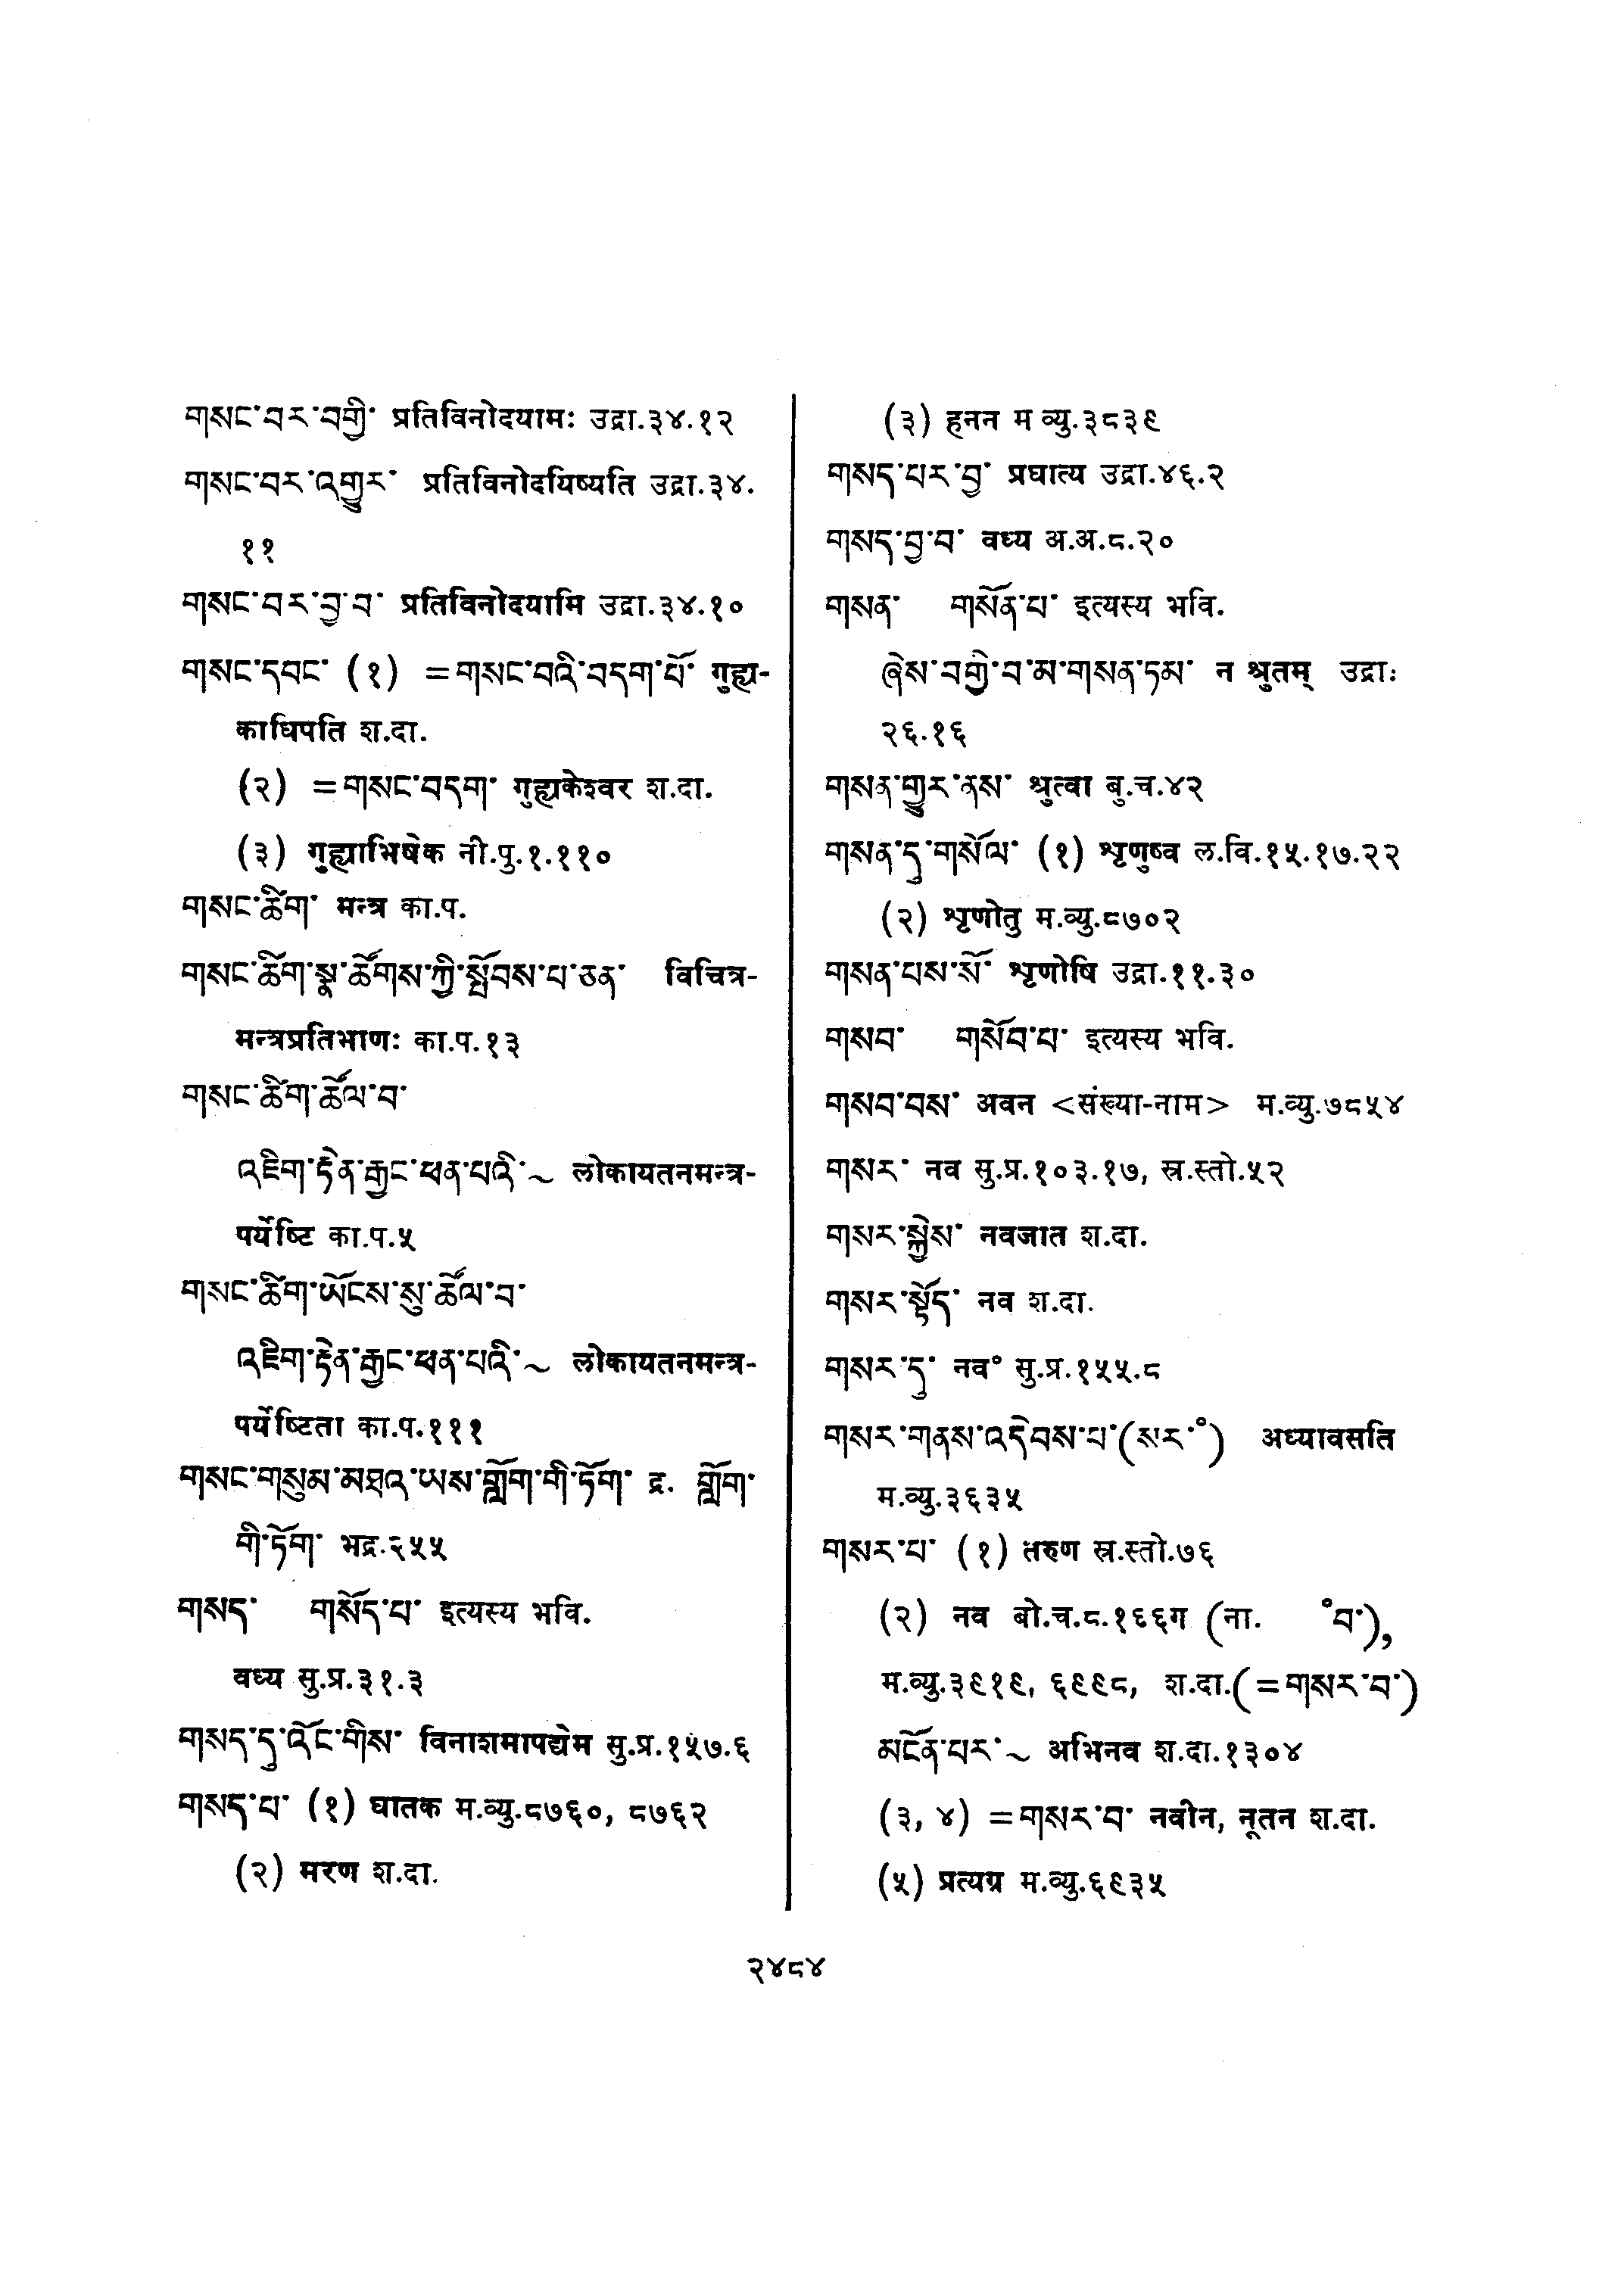 གསང་བར་བགྱི་ प्रतिविनोदयामः उद्रा.३४.१२
གསང་བར་འགྱུར་ प्रतिविनोदयिष्यति उद्रा.३४.
११
གསང་བར་བྱ་བ་ प्रतिविनोदयामि उद्रा.३४.१०
གསང་དབང་ (१) =གསང་བའི་བདག་པོ་ गुह्य-
काधिपति श.दा.
(२) =གསང་བདག་ गुह्यकेश्वर श.दा.
(३) गुह्याभिषेक नी.पु.१.११०
གསང་ཚིག་ मन्त्र का.प.
གསང་ཚིག་སྣ་ཚོགས་ཀྱི་སྤོབས་པ་ཅན་ विचित्र-
मन्त्रप्रतिभाणः का.प.१३
གསང་ཚིག་ཚོལ་བ་
འཇིག་རྟེན་རྒྱང་ཕན་པའི་~ लोकायतनमन्त्र-
पर्येष्टि का.प.५
གསང་ཚིག་ཡོངས་སུ་ཚོལ་བ་
འཇིག་རྟེན་རྒྱང་ཕན་པའི་~ लोकायतनमन्त्र-
पर्येष्टिता का.प.१११
གསང་གསུམ་མཐའ་ཡས་གློག་གི་ཏོག་ द्र. གློག་
གི་ཏོག་ भद्र.२५५
གསད་ གསོད་པ་ इत्यस्य भवि.
वध्य सु.प्र.३१.३
གསད་དུ་འོང་གིས་ विनाशमापद्येम सु.प्र.१५७.६
གསད་པ་ (१) घातक म.व्यु.८७६०, ८७६२
(२) मरण श.दा.
(३) हनन म व्यु.३८३९
གསད་པར་བྱ་ प्रघात्य उद्रा.४६.२
གསད་བྱ་བ་ वध्य अ.अ.८.२०
གསན་ གསོན་པ་ इत्यस्य भवि.
ཞེས་བགྱི་བ་མ་གསན་ཏམ་ न श्रुतम् उद्राः
२६.१६
གསན་གྱུར་ནས་ श्रुत्वा बु.च.४२
གསན་དུ་གསོལ་ (१) शृणुष्व ल.वि.१५.१७.२२
(२) शृणोतु म.व्यु.८७०२
གསན་པས་སོ་ शृणोषि उद्रा.११.३०
གསབ་ གསོབ་པ་ इत्यस्य भवि.
གསབ་བས་ अवन <संख्या-नाम> म.व्यु.७८५४
གསར་ नव सु.प्र.१०३.१७, स्र.स्तो.५२
གསར་སྐྱེས་ नवजात श.दा.
གསར་སྟོད་ नव श.दा.
གསར་དུ་ नव° सु.प्र.१५५.८
གསར་གནས་འདེབས་པ་(སར་°) अध्यावसति
म.व्यु.३६३५
གསར་པ་ (१) तरुण स्र.स्तो.७६
(२) नव बो.च.८.१६६ग (ना. °བ་),
म.व्यु.३९१९, ६९९८, श.दा.(=གསར་བ་)
མངོན་པར་~ अभिनव श.दा.१३०४
(३, ४) =གསར་བ་ नवीन, नूतन श.दा.
(५) प्रत्यग्र म.व्यु.६९३५
२४८४